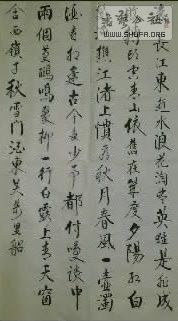 長江東逝水浪花淘尽英雄是非成
頭空青山依舊在幾度夕陽紅白
樵江渚上慣看秋月春風一壺濁
酒喜相逢古今多少事都付笑談中
兩個黃鸝鳴翠柳一行白鷺上青天窗
含西嶺千秋雪門泊東吴萬里船
WWW.SHUFA.ORG